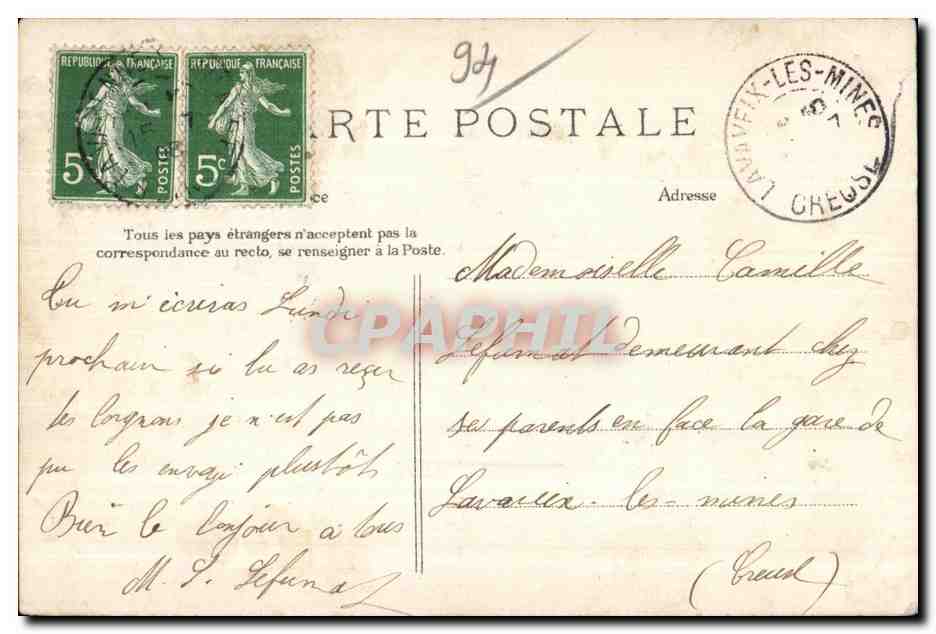 94
RÉPUBLIQUE FRANÇAISE
5c
POSTES
RÉPUBLIQUE FRANÇAISE
5c
POSTES
RTE POSTALE
LAVAVEIX-LES-MINES
CREUSE
ce
Adresse
Tous les pays étrangers n'acceptent pas la
correspondance au recto, se renseigner à la Poste.
Tu m'écriras Lundi
prochain si tu as reçu
les lorgnons je n'est pas
pu les envoyé plustôt
Bien le bonjour à tous
M. L.
Mademoiselle Camille
demeurant chez
ses parents en face la gare de
Lavaveix-les-mines
(Creuse)
CPAPHIL